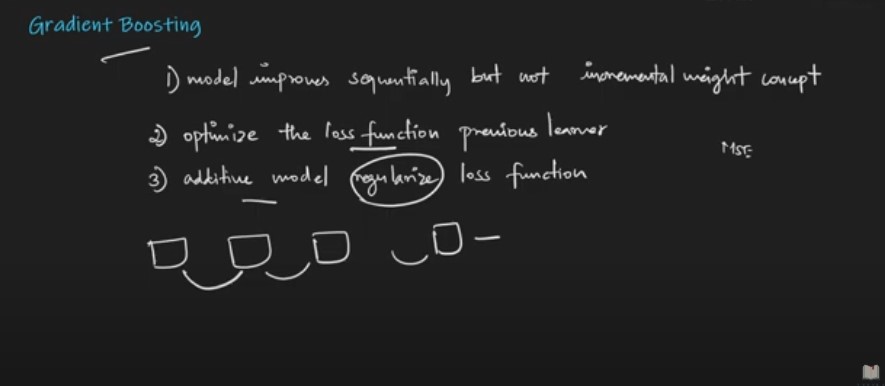 Gradient Boosting
1) model improves sequentially but not incremental weight concept
2) optimize the loss function previous learner
MSE
3) additive model regularize loss function